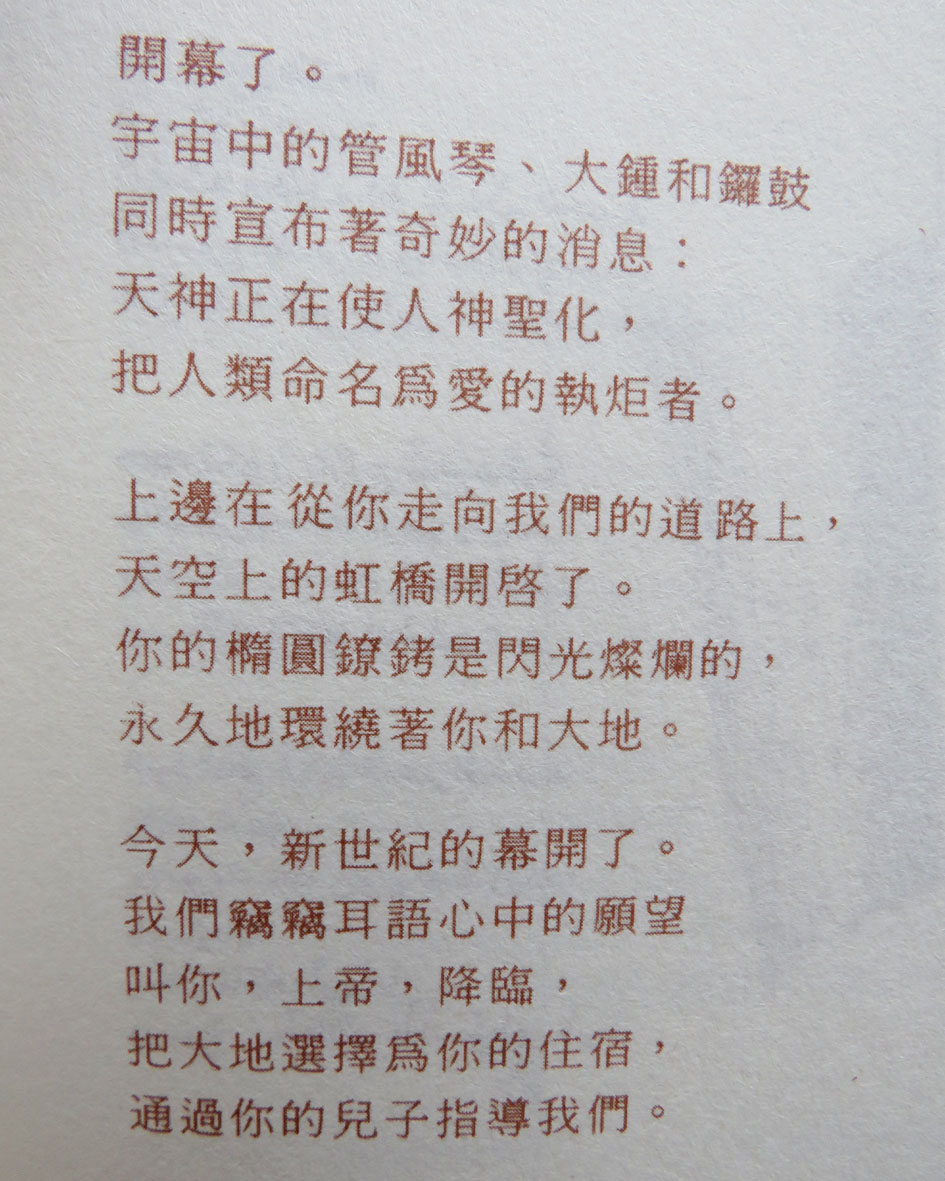 開幕了。
宇宙中的管風琴、大鍾和鑼鼓
同時宣布著奇妙的消息：
天神正在使人神聖化，
把人類命名爲愛的執炬者。
上邊在從你走向我們的道路上，
天空上的虹橋開啓了。
你的橢圓鐐銬是閃光燦爛的，
永久地環繞著你和大地。
今天，新世紀的幕開了。
我們竊竊耳語心中的願望
叫你，上帝，降臨，
把大地選擇爲你的住宿，
通過你的兒子指導我們。